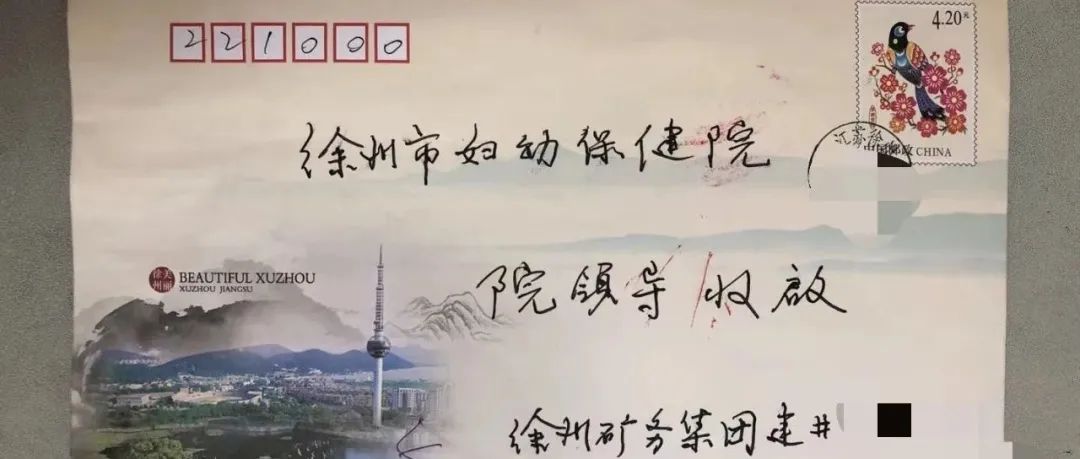 221000
4.20元
中国邮政 CHINA
徐州市妇幼保健院
美丽徐州
BEAUTIFUL XUZHOU
XUZHOU JIANGSU
院领导 收启
徐州矿务集团建井